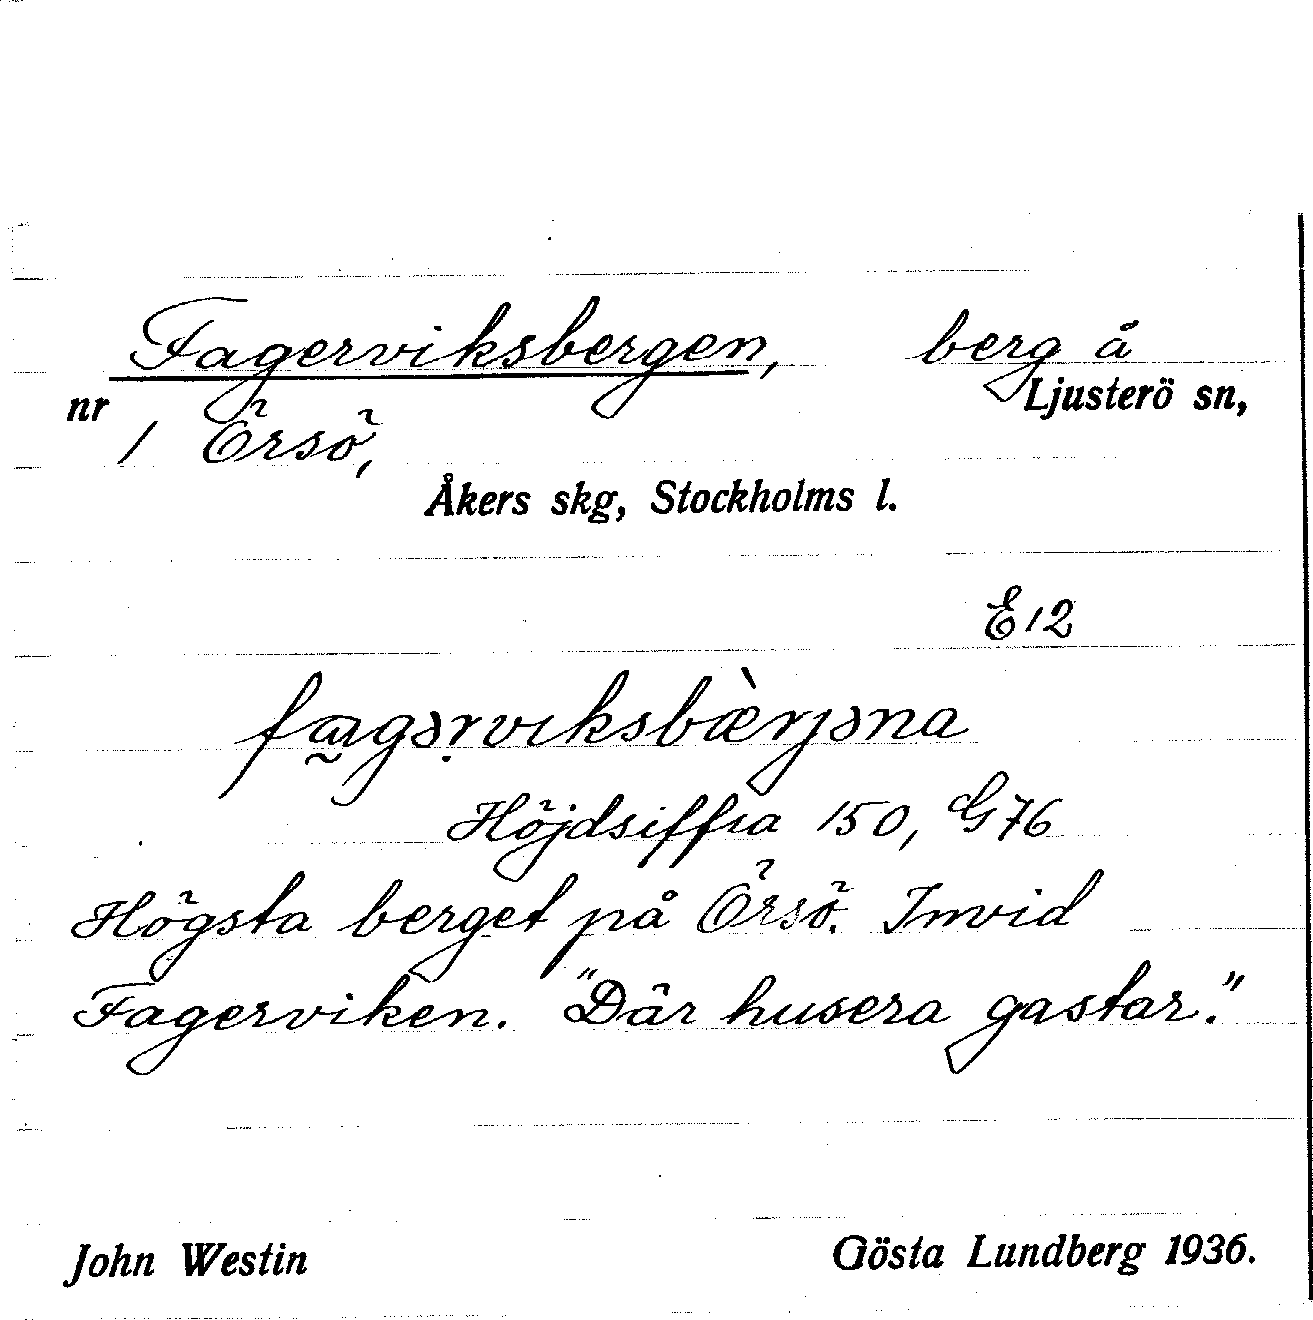 Fagerviksbergen, berg å
Ljusterö sn,
nr 1 Örsö,
Åkers skg, Stockholms l.
E12
fa̰gəṛvıksbæ̀rjəna
Höjdsiffra 150, G76
Högsta berget på Örsö. Invid
Fagerviken. "Där husera gastar."
John Westin Gösta Lundberg 1936.